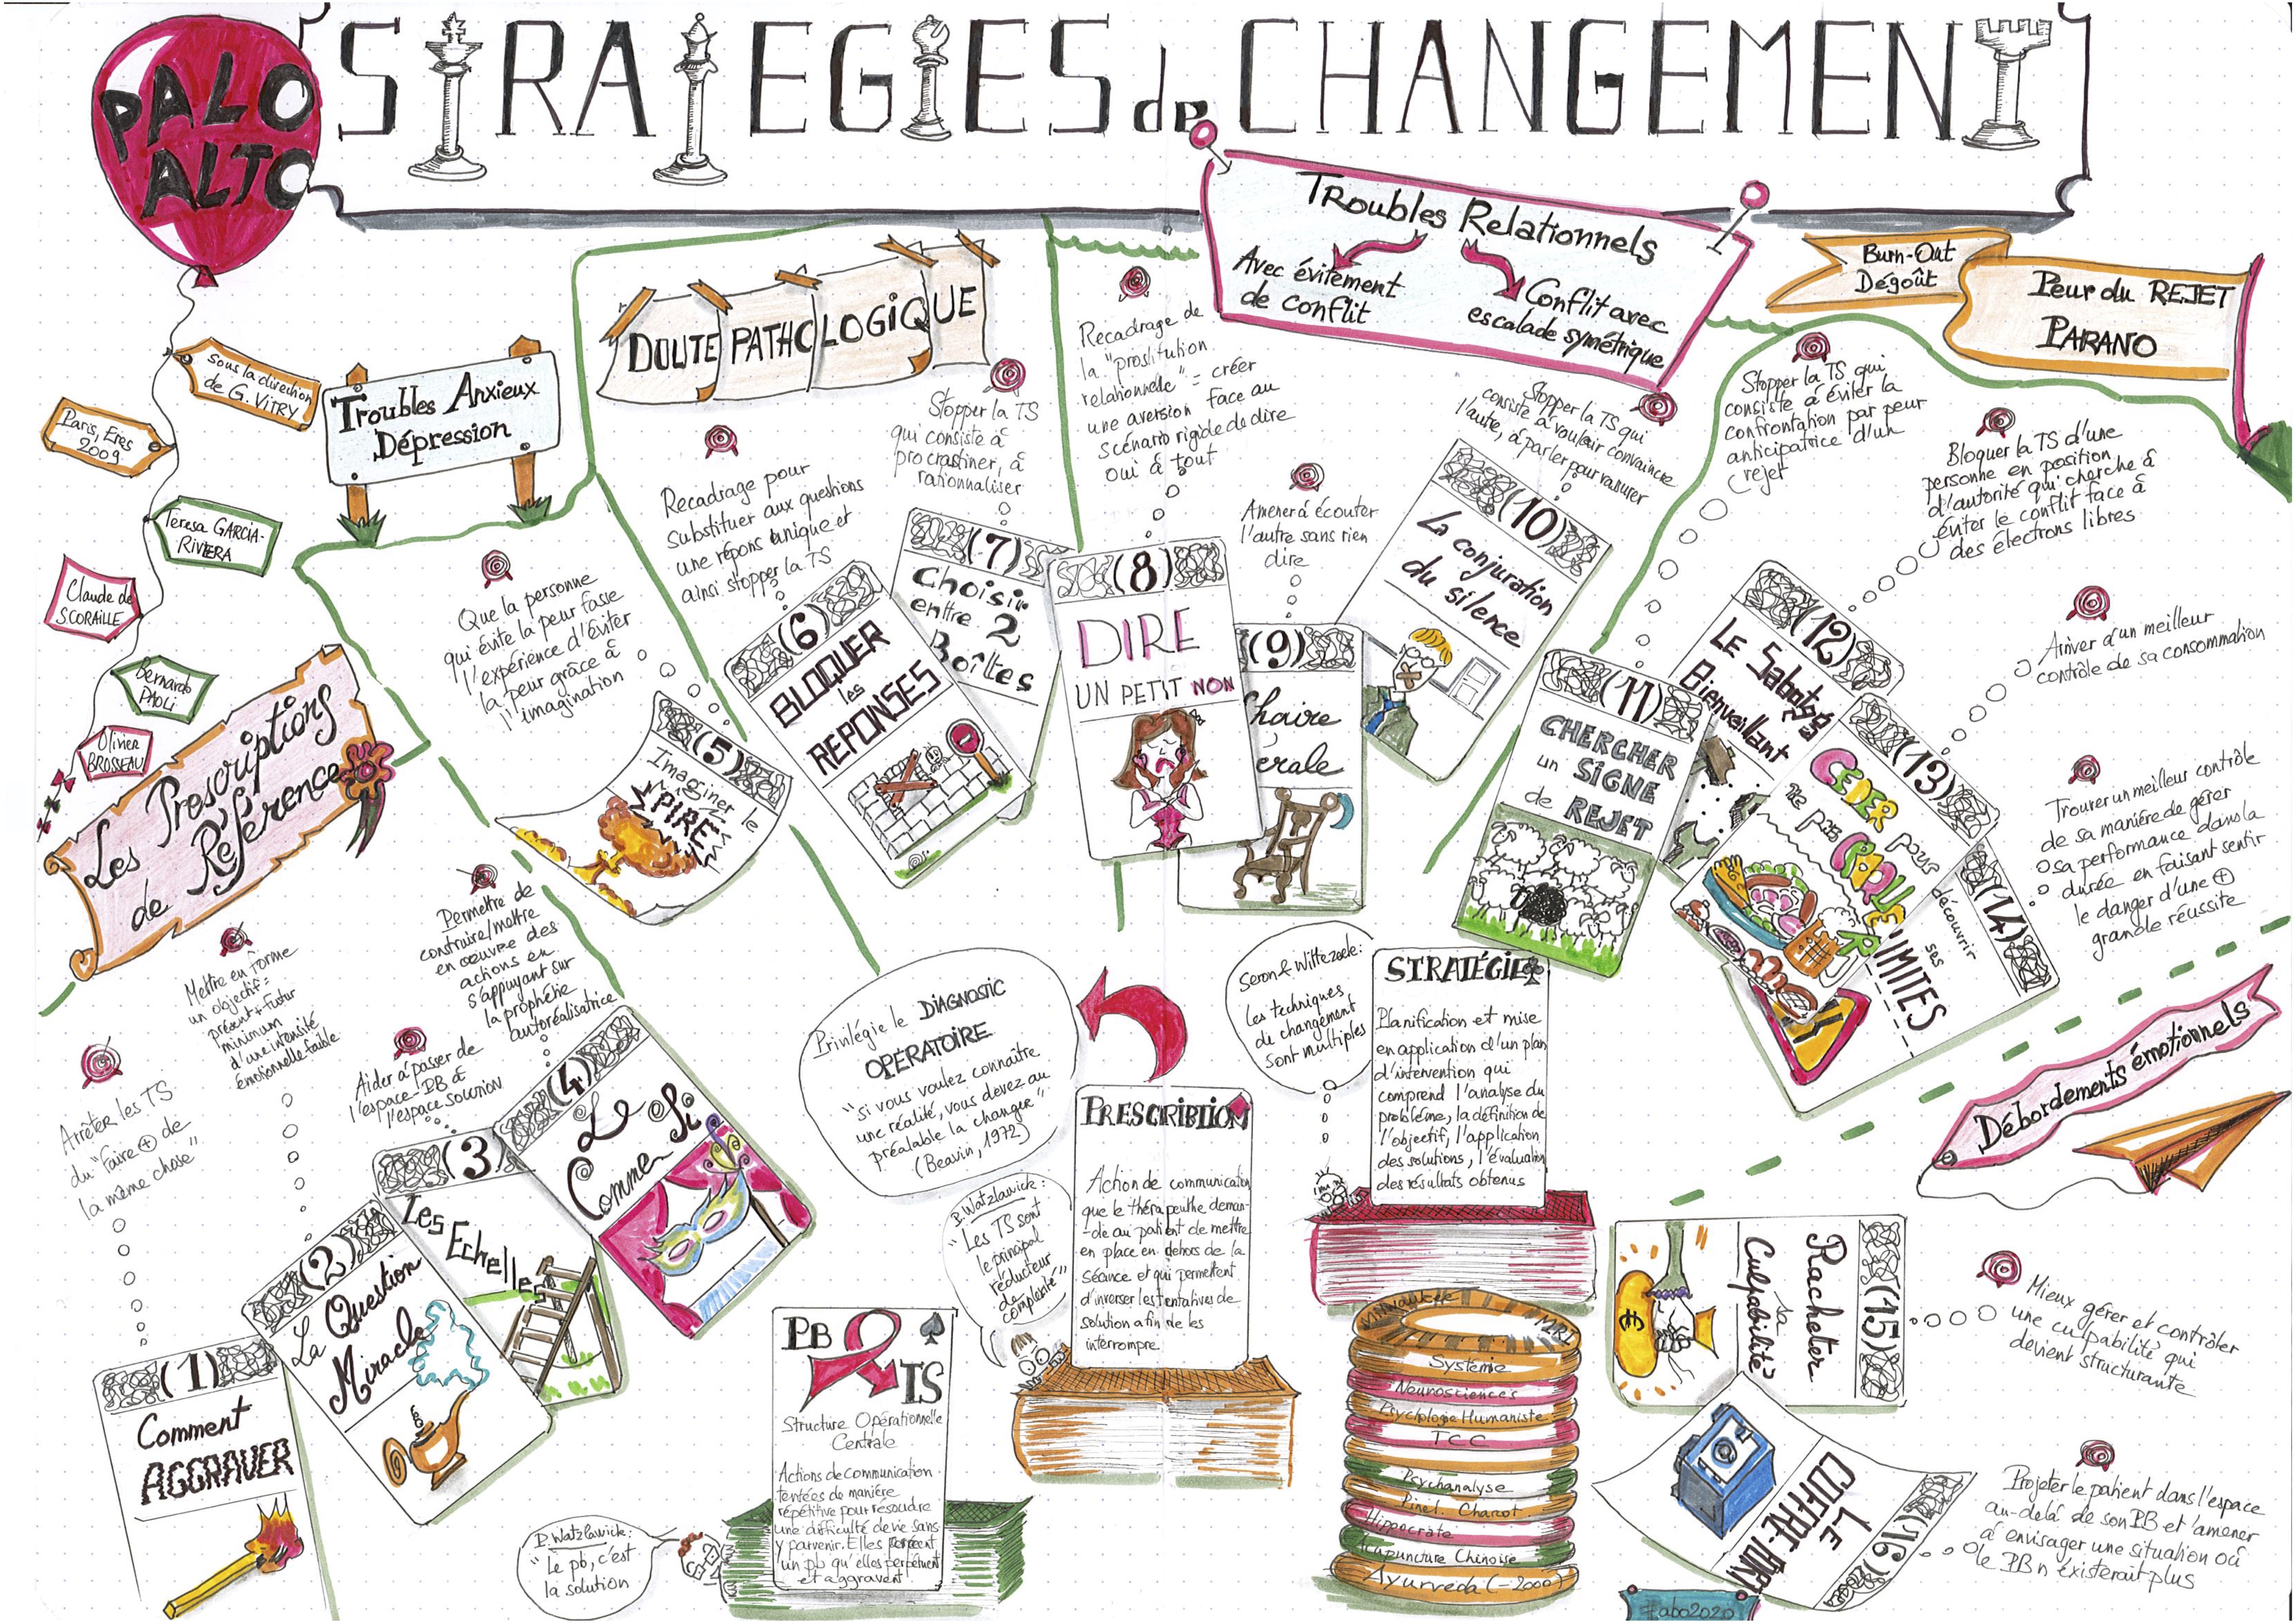 PALO
ALTO
STRATEGIES de CHANGEMENT
sous la direction
de G. VITRY
Paris, Eres
2009
Teresa GARCIA-
RIVIERA
Claude de
SCORAILLE
Bernardo
PAOLI
Olivier
BROSSEAU
Les Prescriptions
de Référence
Troubles Anxieux
Dépression
DOUTE PATHOLOGIQUE
Troubles Relationnels
Avec évitement
de conflit
Conflit avec
escalade symétrique
Burn-Out
Dégoût
Peur du REJET
PARANO
Débordements émotionnels
Arrêter les TS
du "faire + de
la même chose"
(1)
Comment
AGGRAVER
Mettre en forme
un objectif =
présent + futur
minimum
d'une intensité
émotionnelle faible
(2)
La Question
Miracle
Aider à passer de
l'espace-PB à
l'espace solution
(3)
Les Echelles
Permettre de
construire/mettre
en oeuvre des
actions en
s'appuyant sur
la prophétie
autoréalisatrice
(4)
Le
Comme Si
Que la personne
qui évite la peur fasse
l'expérience d'éviter
la peur grâce à
l'imagination
(5)
Imaginer le
PIRE
Recadrage pour
substituer aux questions
une répons unique et
ainsi stopper la TS
(6)
BLOQUER
les
REPONSES
Stopper la TS
qui consiste à
procrastiner, à
rationnaliser
(7)
Choisir
entre 2
Boîtes
Recadrage de
la "prostitution
relationnelle" = créer
une aversion face au
scénario rigide de dire
oui à tout
(8)
DIRE
UN PETIT NON
Amener à écouter
l'autre sans rien
dire
(9)
Chaire
érale
Stopper la TS qui
consiste à vouloir convaincre
l'autre, à parler pour rassurer
(10)
La conjuration
du silence
Stopper la TS qui
consiste à éviter la
confrontation par peur
anticipatrice d'un
rejet
(11)
CHERCHER
un SIGNE
de REJET
Bloquer la TS d'une
personne en position
d'autorité qui cherche à
éviter le conflit face à
des électrons libres
(12)
LE Sabotage
Bienveillant
Arriver à un meilleur
contrôle de sa consommation
(13)
CEDER pour
ne pas CRAQUER
Trouver un meilleur contrôle
de sa manière de gérer
sa performance dans la
durée en faisant sentir
le danger d'une +
grande réussite
(14)
découvrir
ses
LIMITES
(15)
Racheter
sa
Culpabilité
Mieux gérer et contrôler
une culpabilité qui
devient structurante
(16)
LE
COFFRE-FORT
Projeter le patient dans l'espace
au-delà de son PB et l'amener
à envisager une situation où
le PB n'existerait plus
Privilégie le DIAGNOSTIC
OPÉRATOIRE
"si vous voulez connaître
une réalité, vous devez au
préalable la changer"
(Beavin, 1972)
PB
TS
Structure Opérationnelle
Centrale
Actions de communication
tentées de manière
répétitive pour resoudre
une difficulté de vie sans
y parvenir. Elles
un pb qu'elles perpétuent
et aggravent
P. Watzlawick:
"Le pb, c'est
la solution
P. Watzlawick:
"Les TS sont
le principal
réducteur
de
complexité"
PRESCRIBTION
Action de communication
que le thérapeuthe deman-
-de au patient de mettre
en place en dehors de la
séance et qui permettent
d'inverser les tentatives de
solution afin de les
interrompre.
Seron & Wittezaele:
Les techniques
du changement
sont multiples
STRATÉGIE
Planification et mise
en application d'un plan
d'intervention qui
comprend l'analyse du
problème, la définition de
l'objectif, l'application
des solutions, l'évaluation
des résultats obtenus
Milwaukee
MRI
Systémie
Neurosciences
Psychologie Humaniste
TCC
Psychanalyse
Pinel. Charcot
Hippocrate
Acupuncture Chinoise
Ayurveda (-2000)
Labo2020